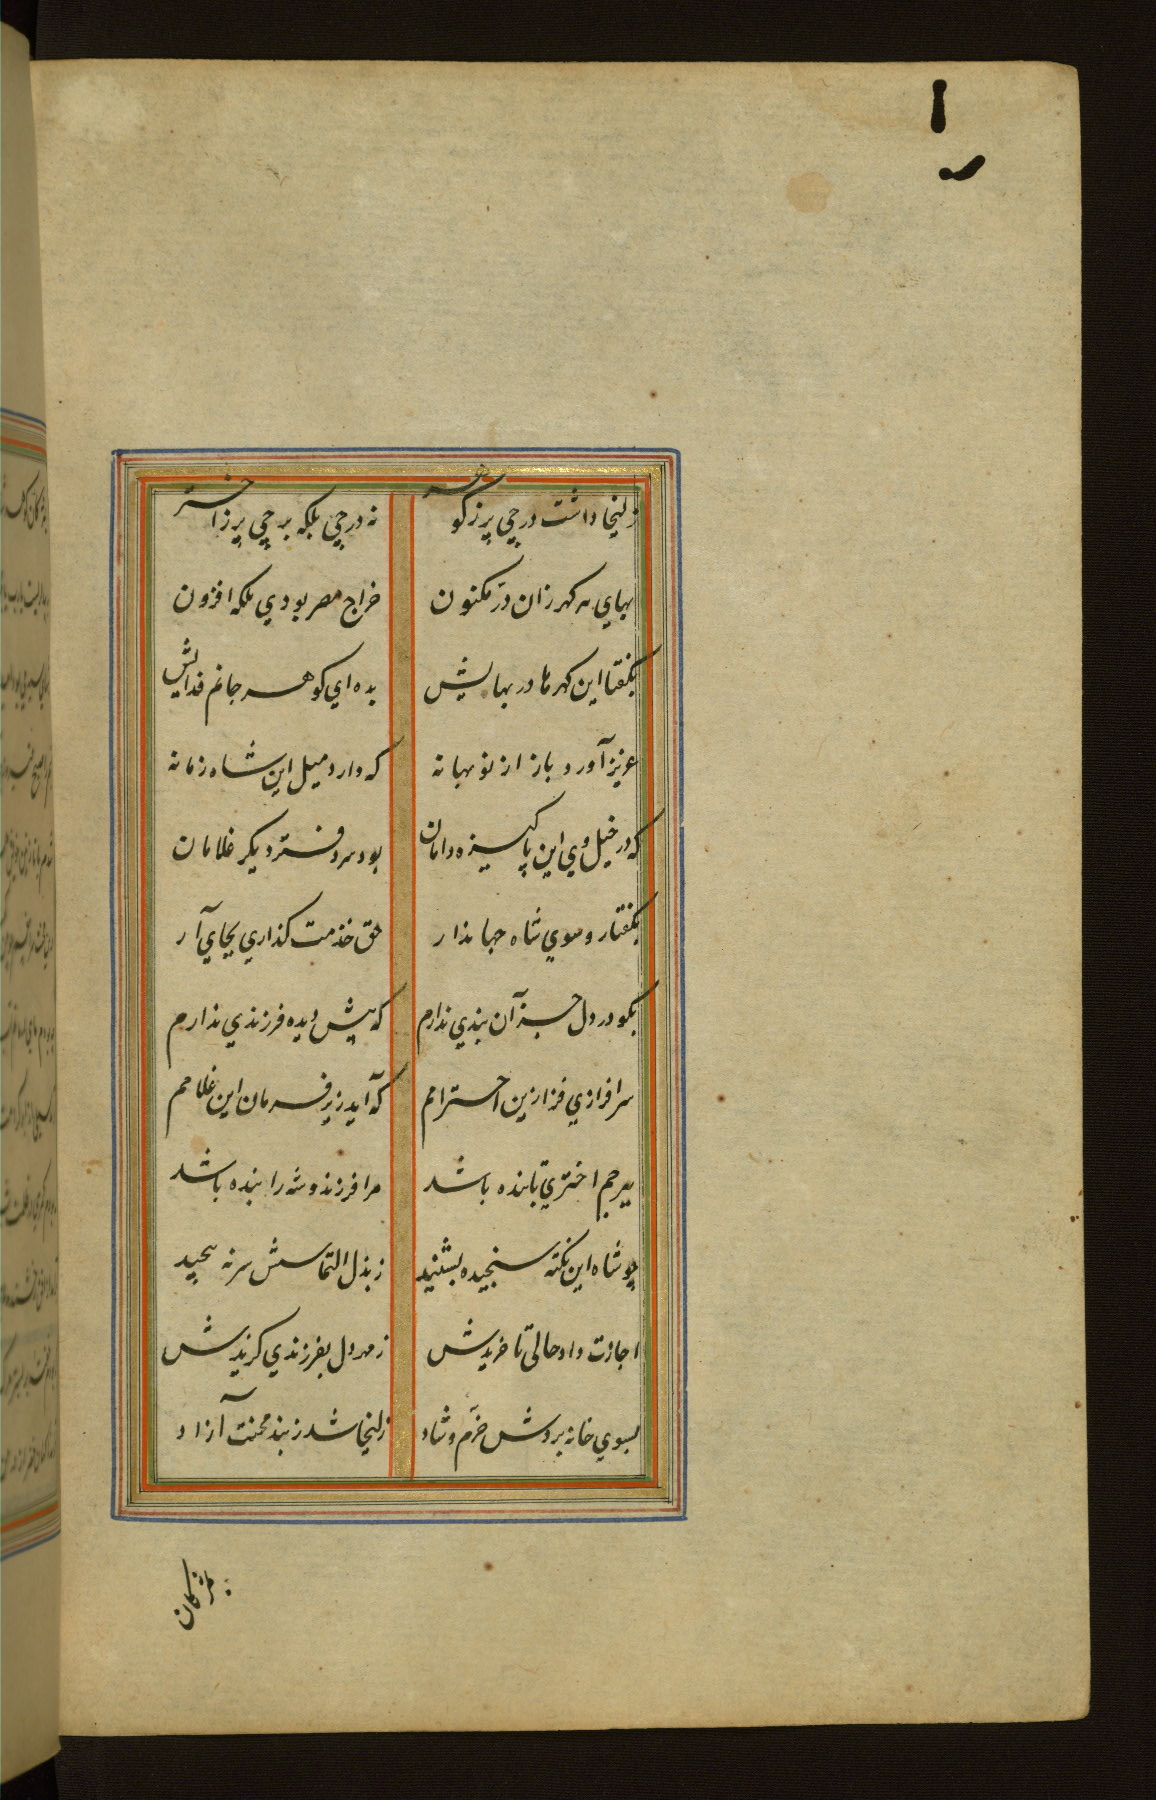 زلیخا داشت درجی پر ز گوهر نه درجی بلکه برجی پر ز اختر
بهای هر گهر زان در مکنون خراج مصر بودی بلکه افزون
بگفتا این گهرها در بهایش بده ای گوهر جانم فدایش
عزیز آورد باز از نو بهانه که دارد میل این شاه زمانه
که در خیل وی این پاکیزه دامان بود سر دفتر دیگر غلامان
بگفتا رو سوی شاه جهاندار حق خدمت گذاری بجای آر
بگو در دل جز آن بندی ندارم که پیش دیده فرزندی ندارم
سرافرازی فزا زین احترامم که آید زیر فرمان این غلامم
ببرجم اختری تابنده باشد مرا فرزند و شه را بنده باشد
چو شاه این نکته سنجیده بشنید ز بذل التماسش سر نه پیچید
اجازت داد حالی تا خریدش ز مهر دل بفرزندی گزیدش
بسوی خانه بردش خرم و شاد زلیخا شد ز بند محنت آزاد
بمژگان